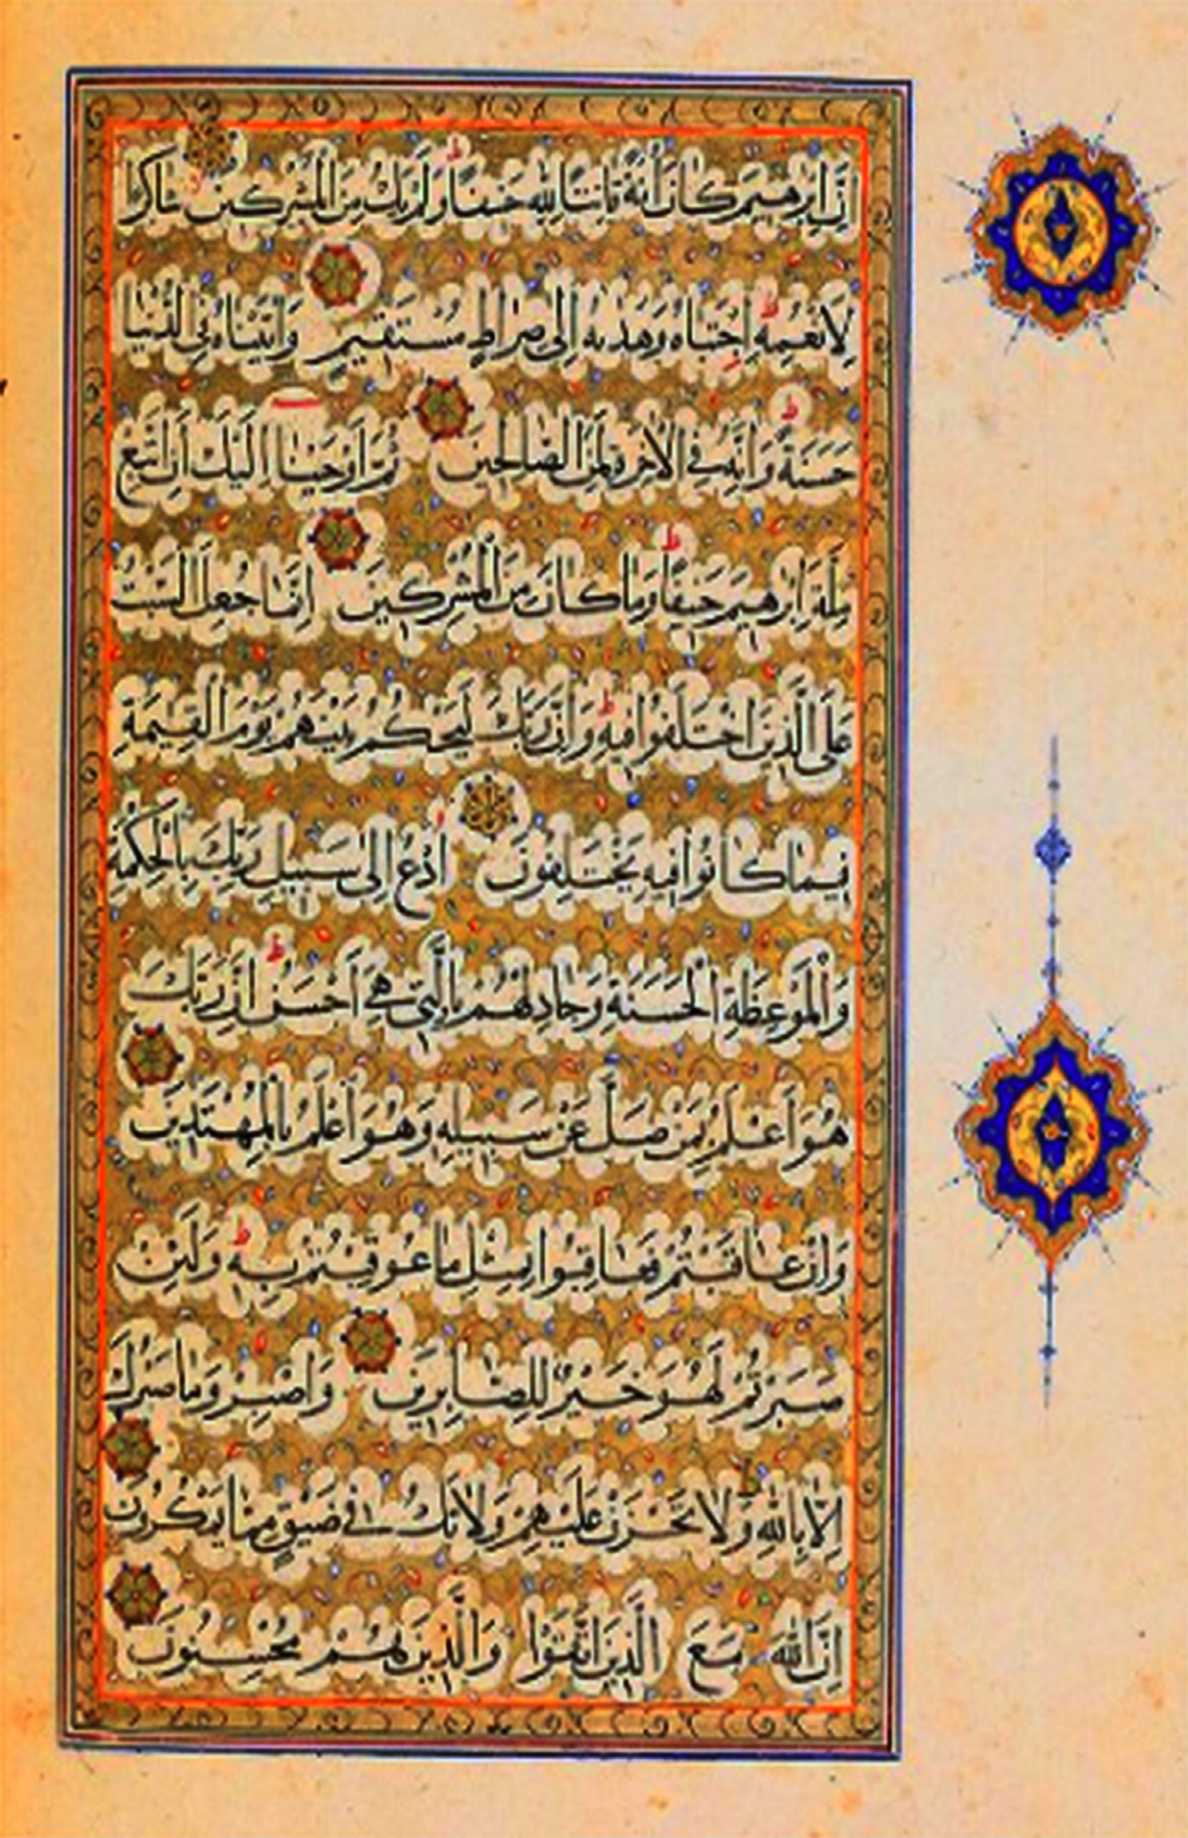 اِنَّ اِبْرٰهيمَ كَانَ اُمَّةً قَانِتًا لِلّٰهِ حَنيفًا وَلَمْ يَكُ مِنَ الْمُشْرِكينَ شَاكِرًا
لِاَنْعُمِهِ اِجْتَبَاهُ وَهَدٰيهُ اِلٰى صِرَاطٍ مُسْتَقيمٍ وَاٰتَيْنَاهُ فِى الدُّنْيَا
حَسَنَةً وَاِنَّهُ فِى الْاٰخِرَةِ لَمِنَ الصَّالِحينَ ثُمَّ اَوْحَيْنَا اِلَيْكَ اَنِ اتَّبِعْ
مِلَّةَ اِبْرٰهيمَ حَنيفًا وَمَا كَانَ مِنَ الْمُشْرِكينَ اِنَّمَا جُعِلَ السَّبْتُ
عَلَى الَّذينَ اخْتَلَفُوا فيهِ وَاِنَّ رَبَّكَ لَيَحْكُمُ بَيْنَهُمْ يَوْمَ الْقِيٰمَةِ
فيمَا كَانُوا فيهِ يَخْتَلِفُونَ اُدْعُ اِلٰى سَبيلِ رَبِّكَ بِالْحِكْمَةِ
وَالْمَوْعِظَةِ الْحَسَنَةِ وَجَادِلْهُمْ بِالَّتى هِىَ اَحْسَنُ اِنَّ رَبَّكَ
هُوَ اَعْلَمُ بِمَنْ ضَلَّ عَنْ سَبيلِهِ وَهُوَ اَعْلَمُ بِالْمُهْتَدينَ
وَاِنْ عَاقَبْتُمْ فَعَاقِبُوا بِمِثْلِ مَا عُوقِبْتُمْ بِهِ وَلَئِنْ
صَبَرْتُمْ لَهُوَ خَيْرٌ لِلصَّابِرينَ وَاصْبِرْ وَمَا صَبْرُكَ
اِلَّا بِاللّٰهِ وَلَا تَحْزَنْ عَلَيْهِمْ وَلَا تَكُ فى ضَيْقٍ مِمَّا يَمْكُرُونَ
اِنَّ اللّٰهَ مَعَ الَّذينَ اتَّقَوْا وَالَّذينَ هُمْ مُحْسِنُونَ